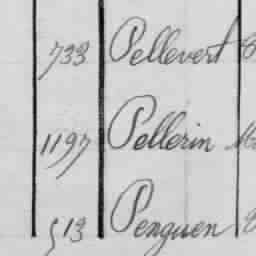 733 Pellevert
1197 Pellerin
513 Penguen